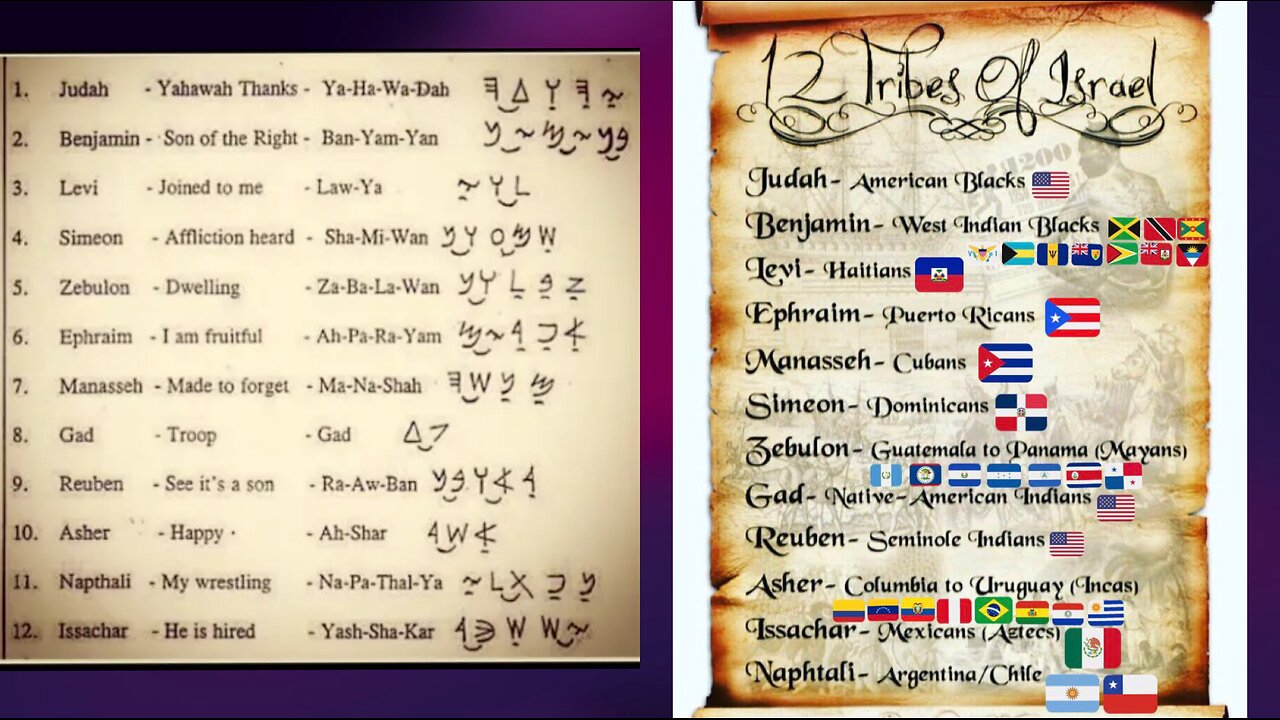 1. Judah - Yahawah Thanks - Ya-Ha-Wa-Dah 𐤉𐤄𐤅𐤃𐤄
2. Benjamin - Son of the Right - Ban-Yam-Yan 𐤁𐤍𐤉𐤌𐤉𐤍
3. Levi - Joined to me - Law-Ya 𐤋𐤅𐤉
4. Simeon - Affliction heard - Sha-Mi-Wan 𐤔𐤌𐤏𐤅𐤍
5. Zebulon - Dwelling - Za-Ba-La-Wan 𐤆𐤁𐤋𐤅𐤍
6. Ephraim - I am fruitful - Ah-Pa-Ra-Yam 𐤀𐤐𐤓𐤉𐤌
7. Manasseh - Made to forget - Ma-Na-Shah 𐤌𐤍𐤔𐤄
8. Gad - Troop - Gad 𐤂𐤃
9. Reuben - See it's a son - Ra-Aw-Ban 𐤓𐤀𐤅𐤁𐤍
10. Asher - Happy · - Ah-Shar 𐤀𐤔𐤓
11. Napthali - My wrestling - Na-Pa-Thal-Ya 𐤍𐤐𐤕𐤋𐤉
12. Issachar - He is hired - Yash-Sha-Kar 𐤉𐤔𐤔𐤊𐤓
12 Tribes Of Israel
Judah- American Blacks
Benjamin- West Indian Blacks
Levi- Haitians
Ephraim- Puerto Ricans
Manasseh- Cubans
Simeon- Dominicans
Zebulon- Guatemala to Panama (Mayans)
Gad- Native-American Indians
Reuben- Seminole Indians
Asher- Columbia to Uruguay (Incas)
Issachar- Mexicans (Aztecs)
Naphtali- Argentina/Chile